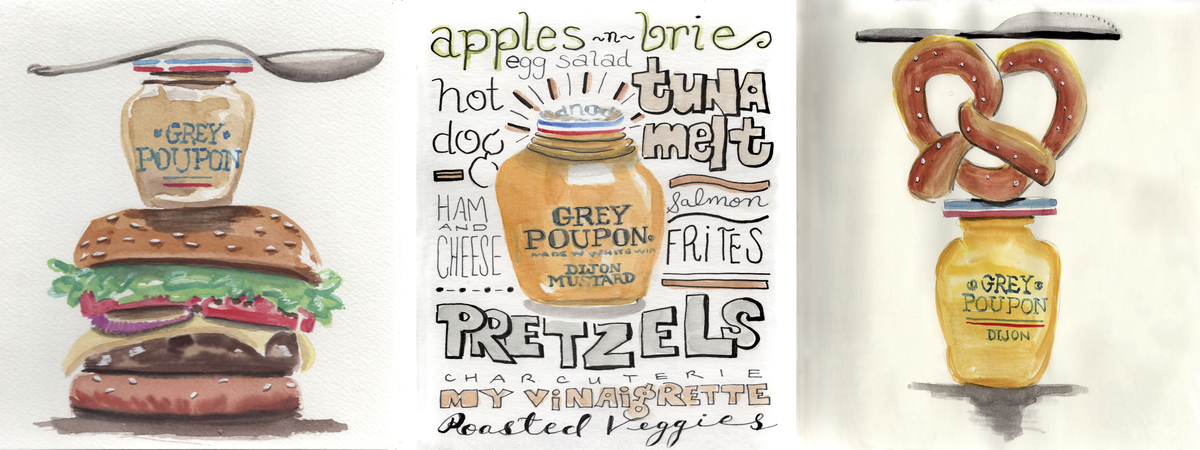 GREY
POUPON
apples -n- brie
egg salad
hot
dog
tuna
melt
HAM
AND
CHEESE
Salmon
FRITES
GREY
POUPON
MADE W WHITE WINE
DIJON
MUSTARD
PRETZELS
CHARCUTERIE
MY ViNAigRETTE
Roasted Veggies
GREY
POUPON
DIJON